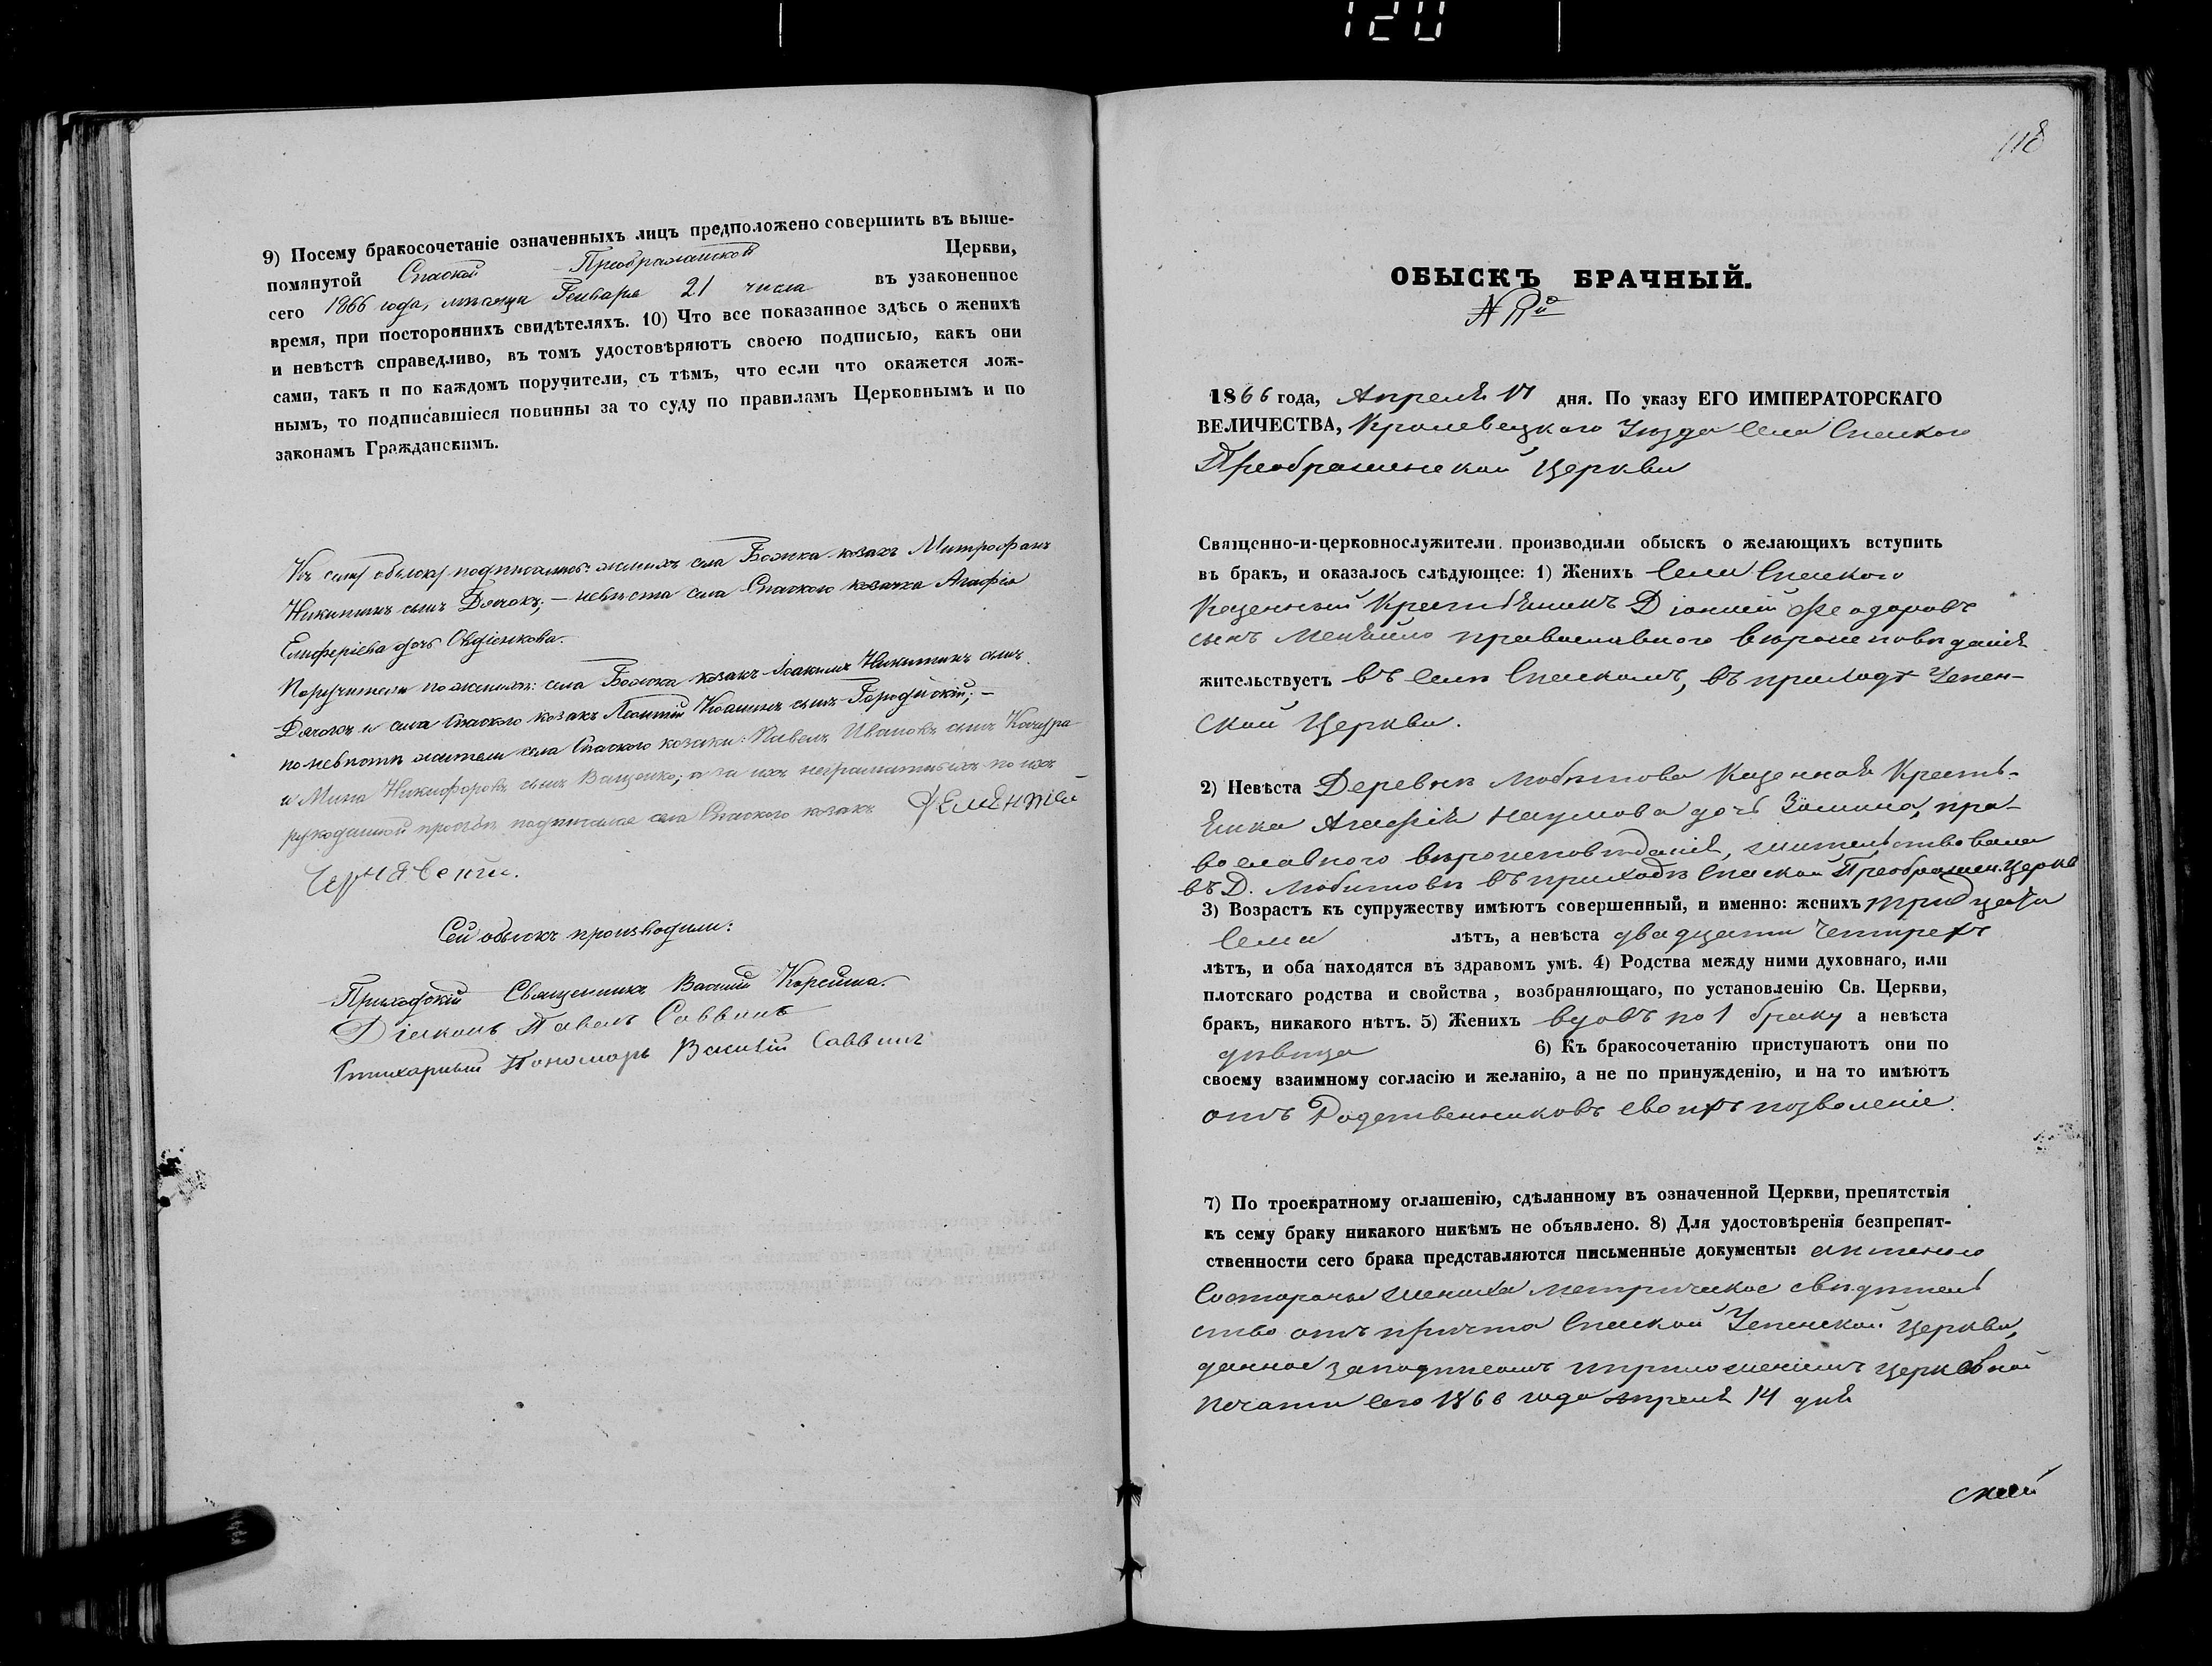 120
9) Посему бракосочетаніе означенныхъ лицъ предположено совершить въ выше-
помянутой Спаской Преображенской Церкви,
сего 1866 года, мѣсяца Генваря 21 числа въ узаконенное
время, при постороннихъ свидѣтеляхъ. 10) Что все показанное здѣсь о женихѣ
и невѣстѣ справедливо, въ томъ удостовѣряютъ своею подписью, какъ они
сами, такъ и по каждомъ поручители, съ тѣмъ, что если что окажется лож-
нымъ, то подписавшіеся повинны за то суду по правиламъ Церковнымъ и по
законамъ Гражданскимъ.
Къ сему обыску подписались: женихъ села Божка козакъ Митрофанъ
Никитинъ сынъ Дячокъ; – невѣста села Спаского козачка Агафія
Елиферіева дочь Овдіенкова.
Поручители по женихѣ: села Божка козакъ Іоакимъ Никитинъ сынъ
Дячокъ и села Спаского козакъ Леонтій сынъ Городискій; –
по невѣстѣ жители села Спаского козаки: Павелъ Ивановъ сынъ Кочура
и Мина Никифоровъ сынъ Ващенко; а за ихъ неграмотныхъ по ихъ
рукоданной прозьбѣ подписался села Спаского козакъ Дементей
Чернявский.
Сей обыскъ производили:
Приходскій Священникъ Василій Корейша.
Діаконъ Павелъ Саввинъ
Стихарный Пономарь Василій Саввинъ
118
ОБЫСКЪ БРАЧНЫЙ.
1866 года, Апреля 17 дня. По указу ЕГО ИМПЕРАТОРСКАГО
ВЕЛИЧЕСТВА, Кролевецкого Уѣзда села Спаского
Преображенской Церкви
Священно-и-церковнослужители производили обыскъ о желающихъ вступить
въ бракъ, и оказалось слѣдующее: 1) Женихъ села Спаского
Казенный Крестьянинъ Діонисій Феодоровъ
сынъ православного вѣроисповѣданія
жительствуетъ въ селѣ Спаскомъ, въ приходѣ Успен-
ской Церкви.
2) Невѣста Деревни Любитова Казенная Кресть-
янка Агафія Наумова дочь Зимина, пра-
вославного вѣроисповѣданія, жительствовала
въ Д. Любитовѣ въ приходѣ Спаской Преображен. Церкв
3) Возрастъ къ супружеству имѣютъ совершенный, и именно: женихъ тридцати
семи лѣтъ, а невѣста двадцати четырехъ
лѣтъ, и оба находятся въ здравомъ умѣ. 4) Родства между ними духовнаго, или
плотскаго родства и свойства, возбраняющаго, по установленію Св. Церкви,
бракъ, никакого нѣтъ. 5) Женихъ вдовъ по 1 браку а невѣста
дѣвица 6) Къ бракосочетанію приступаютъ они по
своему взаимному согласію и желанію, а не по принужденію, и на то имѣютъ
отъ Родственниковъ своихъ позволеніе.
7) По троекратному оглашенію, сдѣланному въ означенной Церкви, препятствія
къ сему браку никакого никѣмъ не объявлено. 8) Для удостовѣренія безпрепят-
ственности сего брака представляются письменные документы: а именно
Состороны жениха метрическое свидѣтель
ство отъ причта Спаской Успенской Церкви,
данное заподписомъ иприложеніемъ церковной
печати сего 1866 года апреля 14 дня
ской